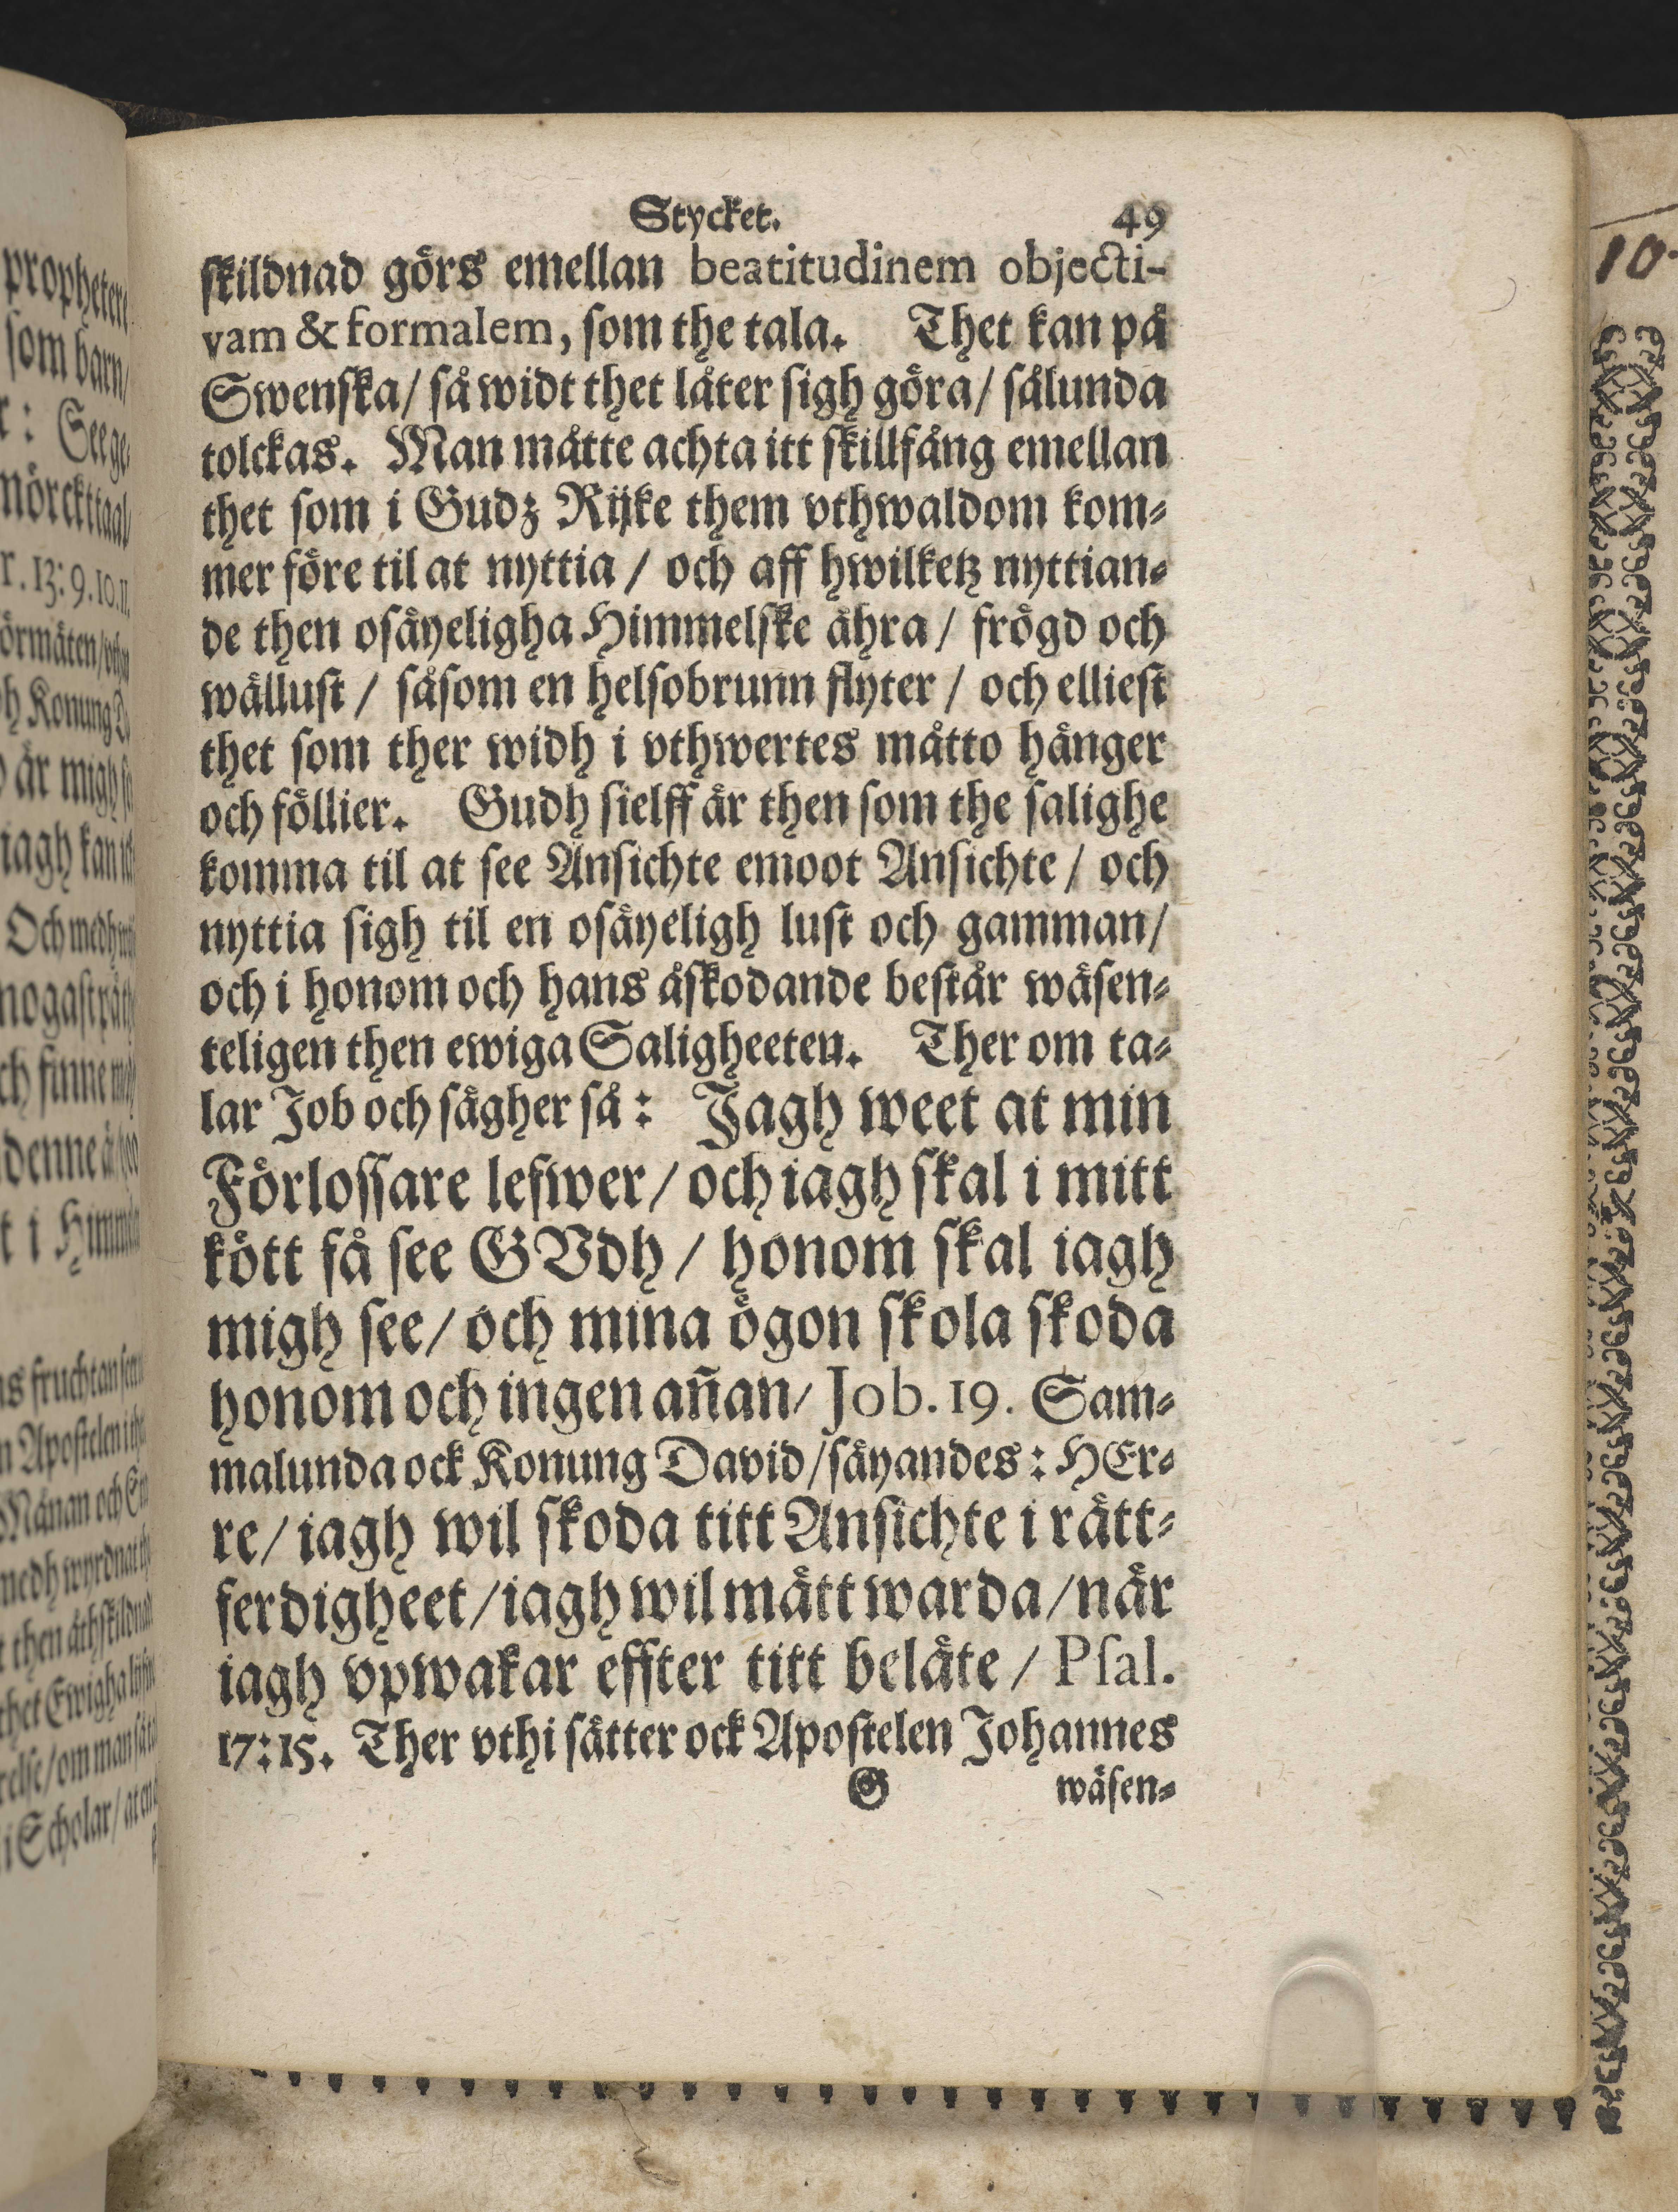 Stycket. 49
skildnad görs emellan beatitudinem objecti-
vam & formalem, som the tala. Thet kan på
Swenska/ så widt thet låter sigh göra/ sålunda
tolckas. Man måtte achta itt skillfång emellan
thet som i Gudz Rijke them vthwaldom kom-
mer före til at nyttia / och aff hwilketz nyttian-
de then osäyeligha Himmelske ähra / frögd och
wällust / såsom en helsobrunn flyter / och elliest
thet som ther widh i vthwertes måtto hänger
och föllier. Gudh sielff är then som the salighe
komma til at see Ansichte emoot Ansichte / och
nyttia sigh til en osäyeligh lust och gamman/
och i honom och hans åskodande består wäsen-
teligen then ewiga Saligheeten. Ther om ta-
lar Job och sägher så: Jagh weet at min
Förlossare lefwer/ och iagh skal i mitt
kött få see GVdh / honom skal iagh
migh see/ och mina ögon skola skoda
honom och ingen añan/ Job. 19. Sam-
malunda ock Konung David/ säyandes: HEr-
re/ iagh wil skoda titt Ansichte i rätt-
ferdigheet/ iagh wil mätt warda/ när
iagh vpwakar effter titt beläte / Psal.
17: 15. Ther vthi sätter ock Apostelen Johannes
G wäsen-
propheter
som barn/
r. 13: 9. 10. 11.
h Konung
är migh
iagh kan
Och medh
t i
n Apostelen
Månan och
i Scholar/
10